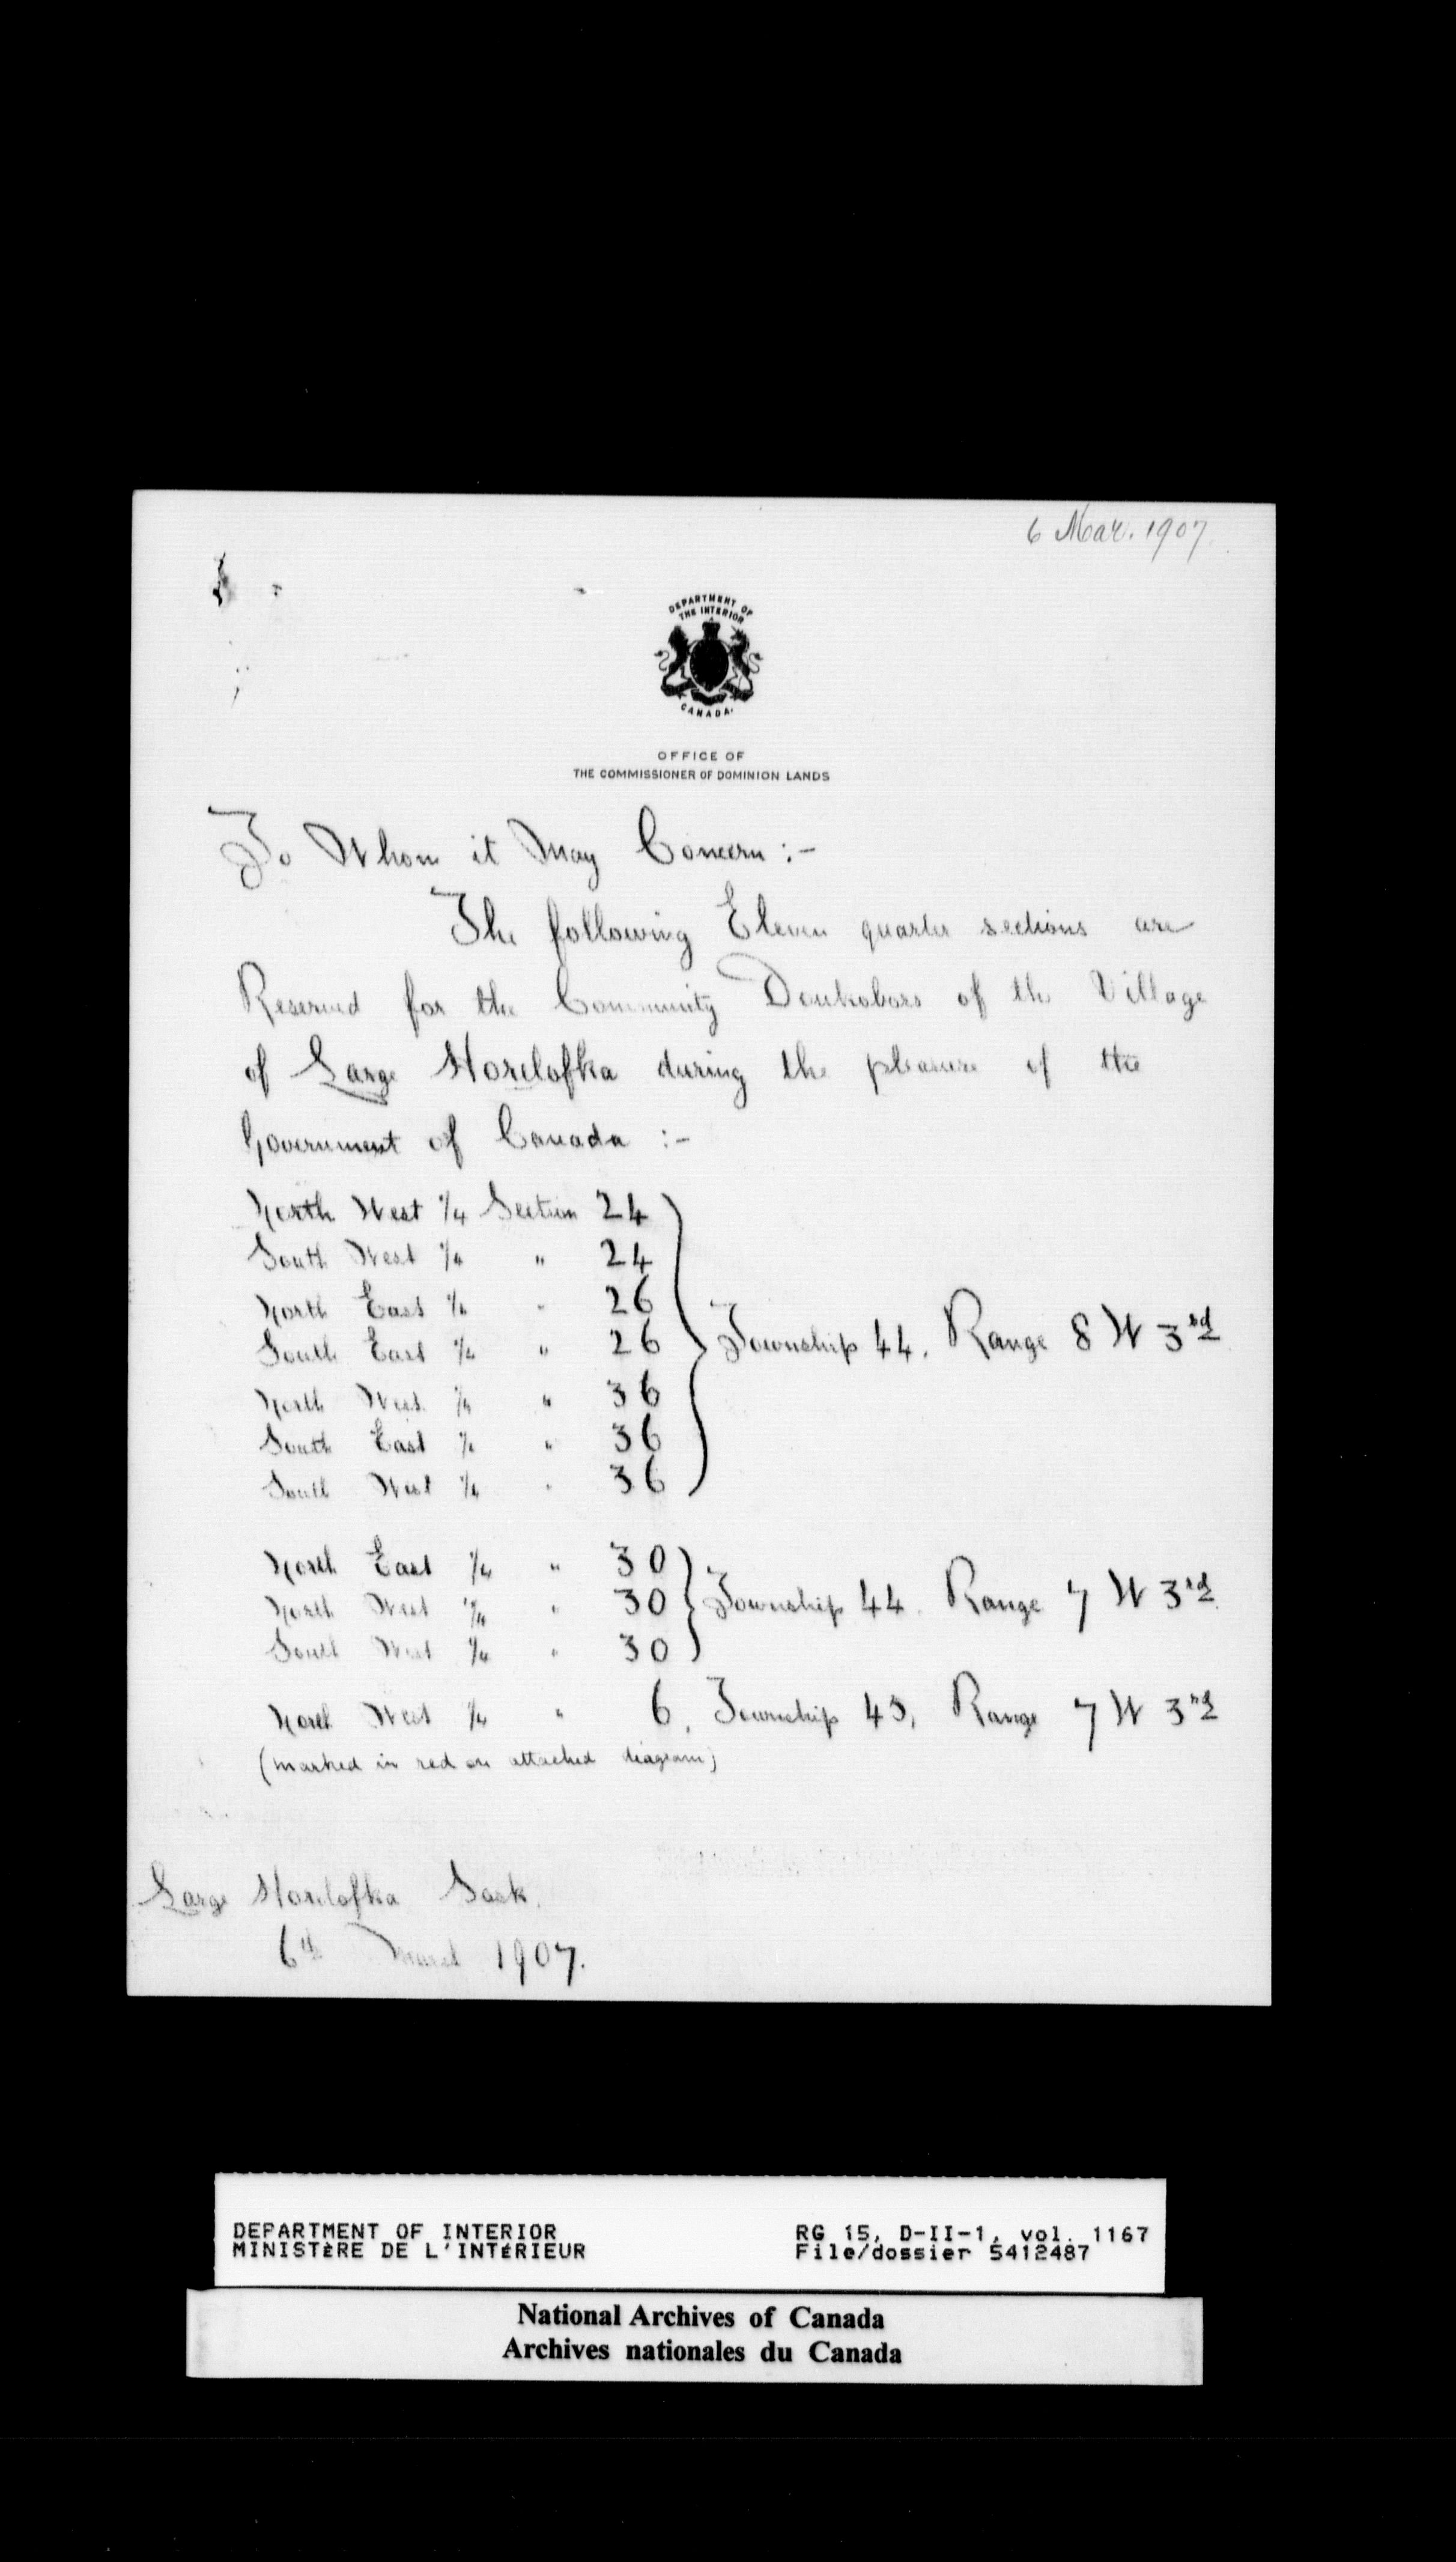 6 Mar. 1907.
DEPARTMENT OF
THE INTERIOR
CANADA.
OFFICE OF
THE COMMISSIONER OF DOMINION LANDS
To Whom it May Concern :-
The following Eleven quarter sections are
Reserved for the Community Doukobors of the Village
of Large Horelofka during the pleasure of the
Government of Canada :-
North West 1/4 Section 24
South West 1/4 " 24
North East 1/4 " 26
South East 1/4 " 26 Township 44, Range 8 W 3rd
North West 1/4 " 36
South East 1/4 " 36
South West 1/4 " 36
North East 1/4 " 30
North West 1/4 " 30 Township 44, Range 7 W 3rd
South West 1/4 " 30
North West 1/4 " 6, Township 45, Range 7 W 3rd
(marked in red on attached diagram)
Large Horelofka Sask.
6th March 1907.
DEPARTMENT OF INTERIOR RG 15, D-II-1, vol. 1167
MINISTÈRE DE L'INTÉRIEUR File/dossier 5412487
National Archives of Canada
Archives nationales du Canada